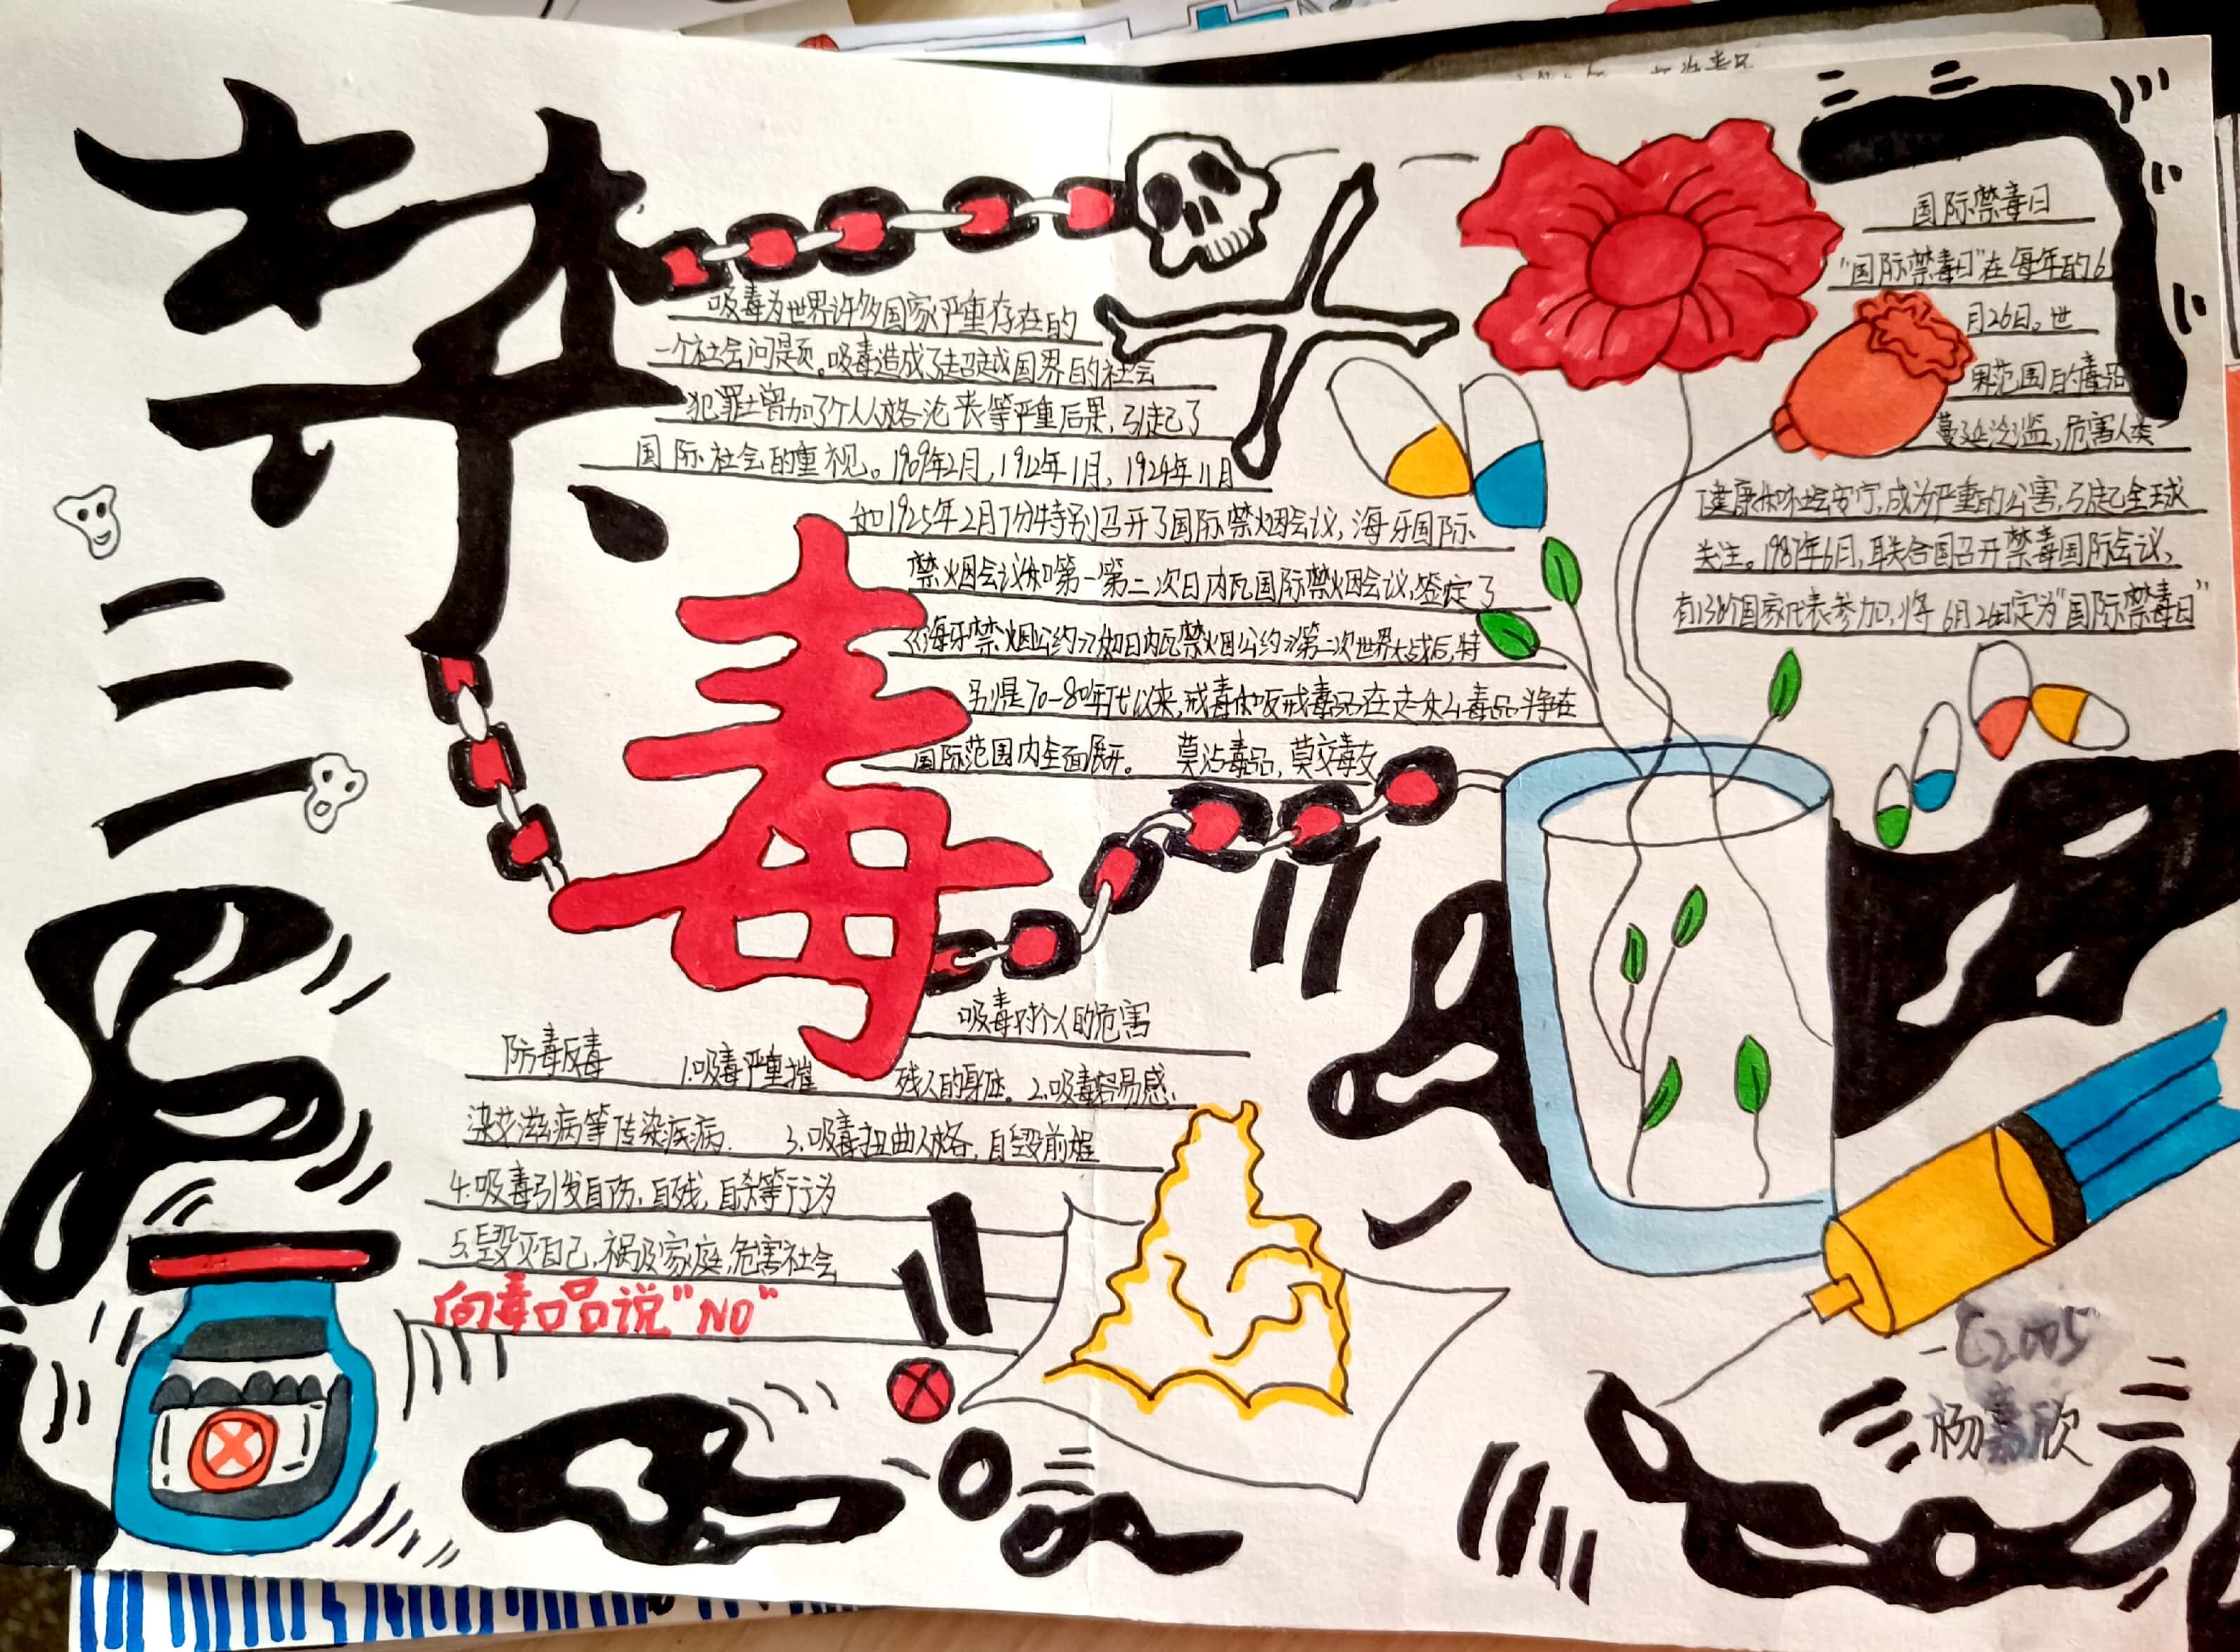 禁
毒
吸毒为世界许多国家严重存在的
一个社会问题。吸毒造成了超越国界的社会
犯罪增加了个人人格沦丧等严重后果，引起了
国际社会的重视。1909年2月，1912年1月，1924年11月
如1925年2月份特别召开了国际禁烟会议，海牙国际
禁烟会议和第一第二次日内瓦国际禁烟会议，签定了
《海牙禁烟公约》《如日内瓦禁烟公约》第二次世界大战后，特
别是70-80年代以来，戒毒
国际范围内全面展开。 莫沾毒品，莫交毒友
国际禁毒日
"国际禁毒日"在每年的6
月26日。世
界范围的毒品
蔓延泛滥，危害人类
健康和社会安宁，成为严重的公害，引起全球
关注。1987年6月，联合国召开禁毒国际会议，
有138个国家代表参加，将6月26日定为"国际禁毒日"
吸毒对个人的危害
防毒反毒 1.吸毒严重摧残人的身体。2.吸毒容易感
染艾滋病等传染疾病. 3.吸毒扭曲人格，自毁前程
4.吸毒引发自伤，自残，自杀等行为
5.毁灭自己，祸及家庭，危害社会
向毒品说"NO"
C2005
杨嘉欣